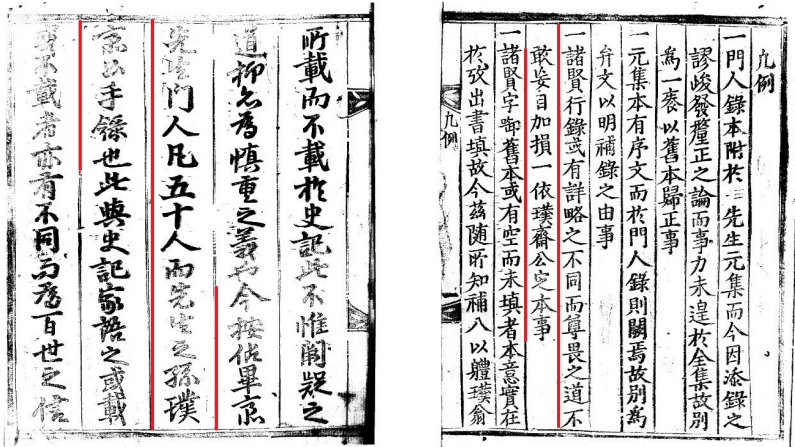 凡例
一門人錄本附於先生元集而今因添錄之
謬峻發釐正之論而事力未遑於全集故別
為一袠以舊本歸正事
一元集本有序文而於門人錄則闕焉故別為
弁文以明補錄之由事
一諸賢行錄或有詳略之不同而尊畏之道不
敢妄自加損一依璞齋公定本事
一諸賢字舊本或有空而未填者本意實在
於攷出書填故今茲随所知補入以軆璞翁
凡例
所載而不載於史記此不惟闕疑之
道抑為慎重之義也今按佔畢齋
先生門人凡五十人而先生之孫璞
齋公手錄也此與史記家語之或載
或不載者亦有不同而為百世之信